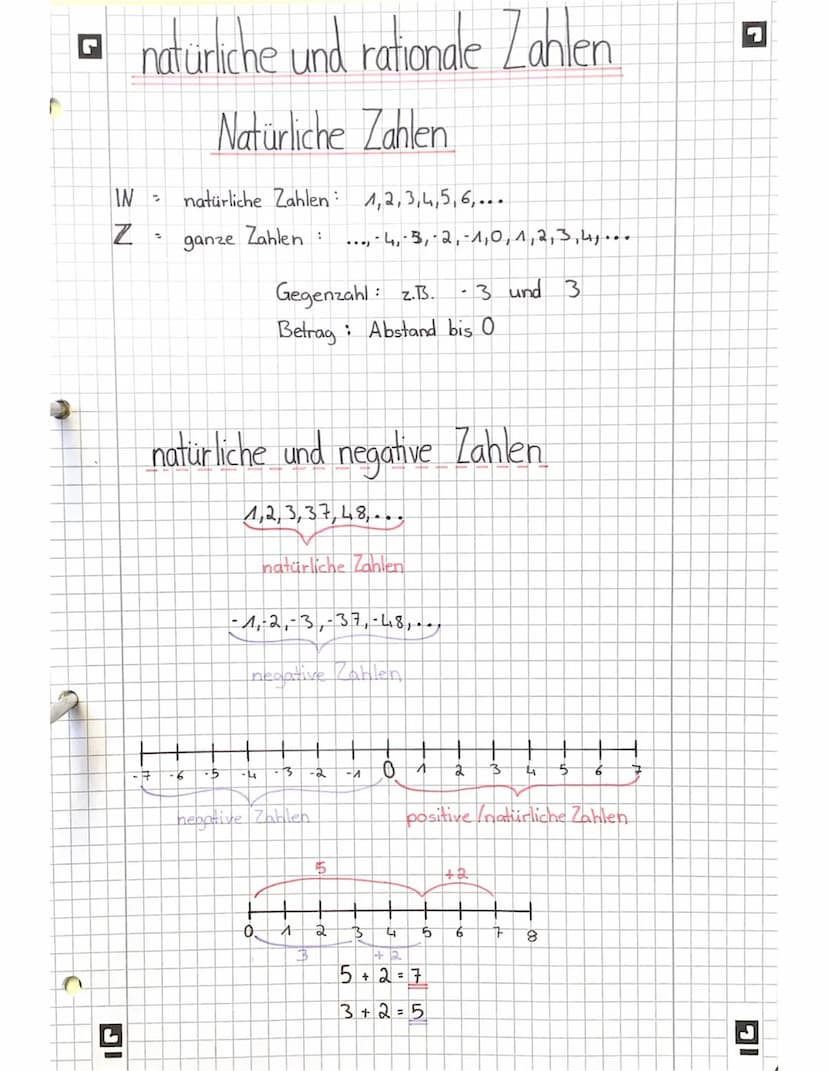 natürliche und rationale Zahlen
Natürliche Zahlen
ℕ = natürliche Zahlen: 1,2,3,4,5,6,...
Z = ganze Zahlen : ...,-4,-3,-2,-1,0,1,2,3,4,...
Gegenzahl: z.B. -3 und 3
Betrag: Abstand bis 0
natürliche und negative Zahlen
1,2,3,37,48,...
natürliche Zahlen
-1,-2,-3,-37,-48,...
negative Zahlen
-7 -6 -5 -4 -3 -2 -1 0 1 2 3 4 5 6 7
negative Zahlen positive/natürliche Zahlen
5 +2
0 1 2 3 4 5 6 7 8
3 +2
5 + 2 = 7
3 + 2 = 5